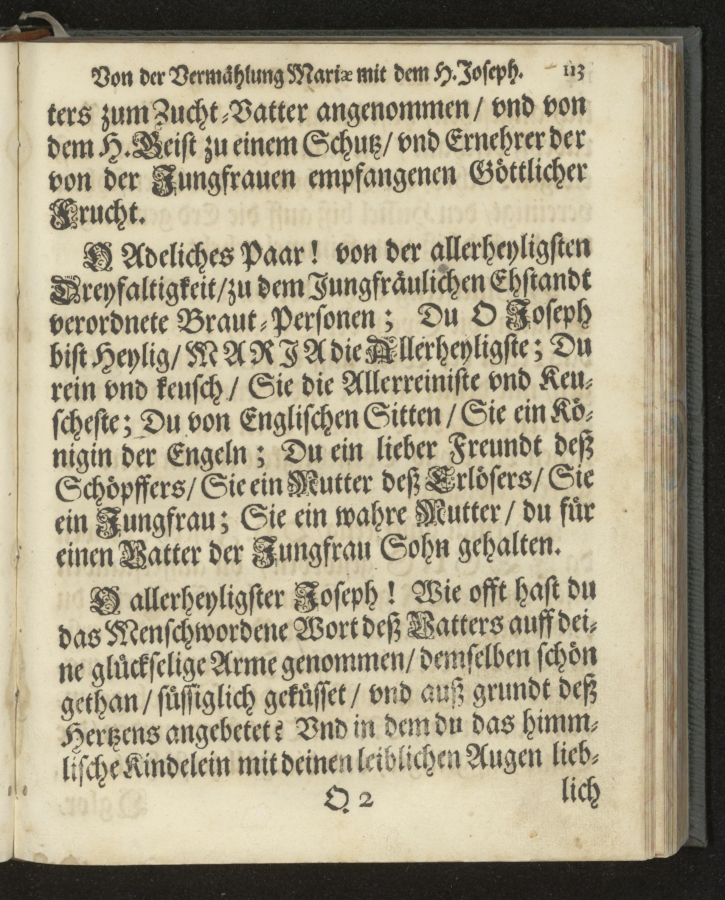 Von der Vermählung Mariæ mit dem H. Joseph. 113
ters zum Zucht-Vatter angenommen / vnd von
dem H. Geist zu einem Schutz / vnd Ernehrer der
von der Jungfrauen empfangenen Göttlicher
Frucht.
O Adeliches Paar! von der allerheyligsten
Dreyfaltigkeit / zu dem Jungfräulichen Ehstandt
verordnete Braut-Personen; Du O Joseph
bist Heylig / MARJA die Allerheyligste; Du
rein vnd keusch / Sie die Allerreiniste vnd Keu-
scheste; Du von Englischen Sitten / Sie ein Kö-
nigin der Engeln; Du ein lieber Freundt deß
Schöpffers / Sie ein Mutter deß Erlösers / Sie
ein Jungfrau; Sie ein wahre Mutter / du für
einen Vatter der Jungfrau Sohn gehalten.
O allerheyligster Joseph! Wie offt hast du
das Menschwordene Wort deß Vatters auff dei-
ne glückselige Arme genommen / demselben schön
gethan / süssiglich geküsset / vnd auß grundt deß
Hertzens angebetet? Vnd in dem du das himm-
lische Kindelein mit deinen leiblichen Augen lieb-
Q 2 lich